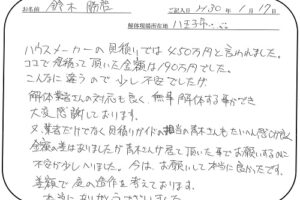 お名前 鈴木 ご記入日 H30年1月17日
解体現場所在地 八王子市
ハウスメーカーの見積りでは450万円と言われました。
ココで見積って頂いた金額は190万円でした。
こんなに違うので少し不安でしたが
解体業者さんの対応も良く、無事解体する事ができ
大変感謝しております。
又、業者だけでなく見積りガイドの担当の青木さんもたいへん感じが良く
金額の差はありましたが青木さんが居て頂いた事でお願いするのに
不安が少しへりました。今は、お願いして本当に良かったです。
差額で庭の造作を考えております。
本当にありがとうございました